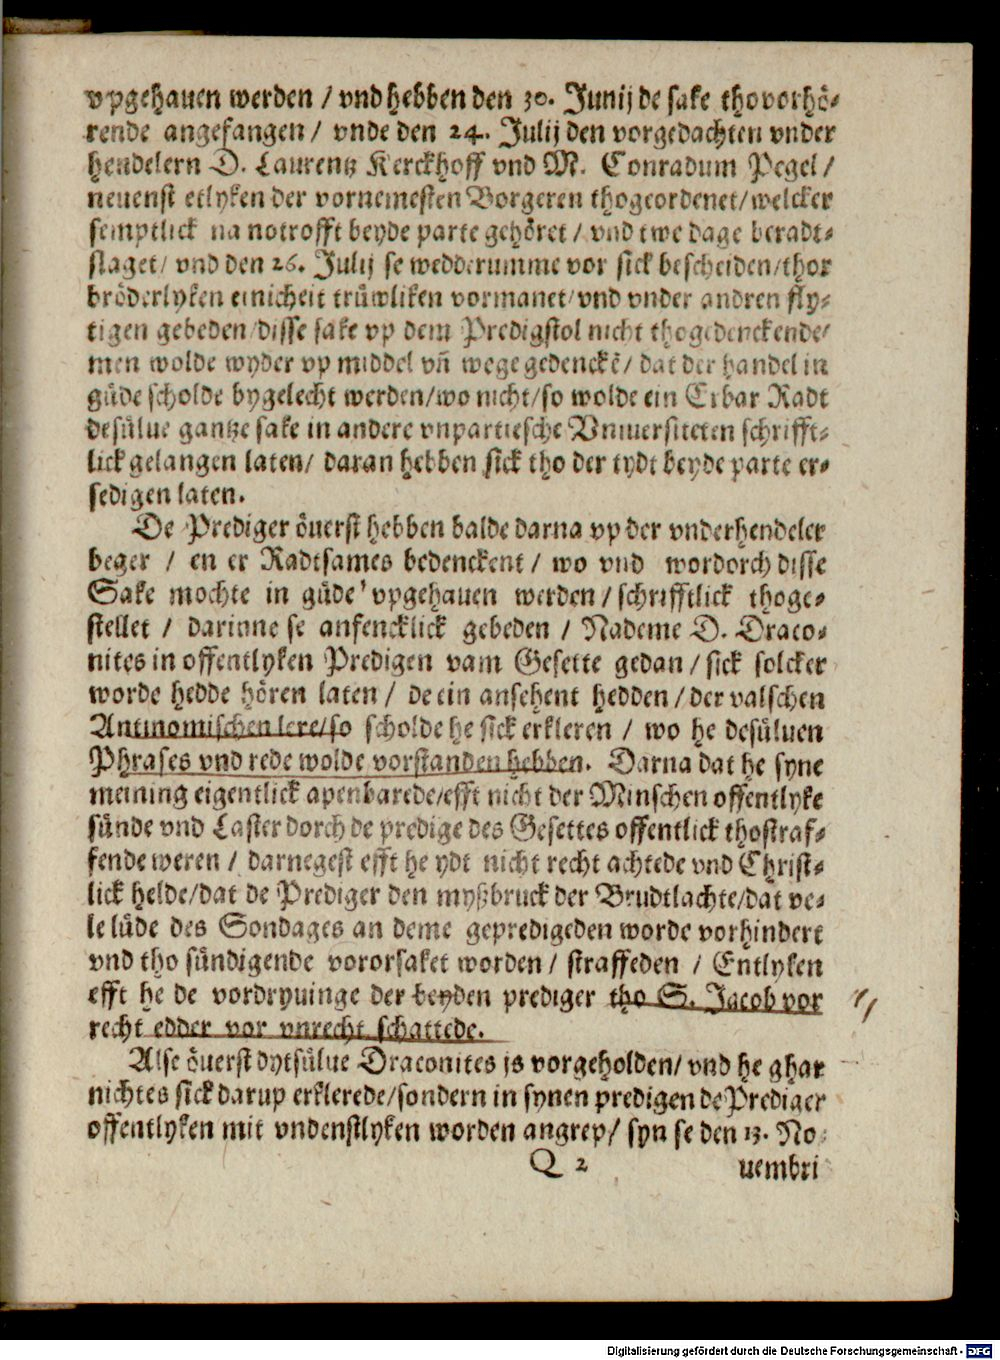 vpgehauen werden / vnd hebben den 30. Junij de sake thovorhö-
rende angefangen / vnde den 24. Julij den vorgedachten vnder
hendelern D. Laurentz Kerckhoff vnd M. Conradum Pegel /
neuenst etlyken der vornemesten Borgeren thogeordenet / welcker
semptlick na notrofft beyde parte gehöret / vnd twe dage beradt-
slaget / vnd den 26. Julij se wedderumme vor sick bescheiden / thor
bröderlyken einicheit trüwliken vormanet / vnd vnder andren fly-
tigen gebeden / disse sake vp dem Predigstol nicht thogedenckende /
men wolde wyder vp middel vñ wege gedenckē / dat der handel in
güde scholde bygelecht werden / wo nicht / so wolde ein Erbar Radt
desülue gantze sake in andere vnpartiesche Vniuersiteten schrifft-
lick gelangen laten / daran hebben sick tho der tydt beyde parte er-
sedigen laten.
De Prediger öuerst hebben balde darna vp der vnderhendeler
beger / en er Radtsames bedenckent / wo vnd wordorch disse
Sake mochte in güde vpgehauen werden / schrifftlick thoge-
stellet / darinne se anfencklick gebeden / Nademe D. Draco-
nites in offentlyken Predigen vam Gesette gedan / sick solcker
worde hedde hören laten / de ein ansehent hedden / der valschen
Antinomischen lere / so scholde he sick erkleren / wo he desüluen
Phrases vnd rede wolde vorstanden hebben. Darna dat he syne
meining eigentlick apenbarede / efft nicht der Minschen offentlyke
sünde vnd Laster dorch de predige des Gesettes offentlick thostraf-
fende weren / darnegest efft he ydt nicht recht achtede vnd Christ-
lick helde / dat de Prediger den myßbruck der Brudtlachte / dat ve-
le lüde des Sondages an deme gepredigeden worde vorhindert
vnd tho sündigende vororsaket worden / straffeden / Entlyken
efft he de vordryuinge der beyden prediger tho S. Jacob vor
recht edder vor vnrecht schattede.
Alse öuerst dytsülue Draconites js vorgeholden / vnd he ghar
nichtes sick darup erklerede / sondern in synen predigen de Prediger
offentlyken mit vndenstlyken worden angrep / syn se den 13. No-
Q 2 uembri
Digitalisierung gefördert durch die Deutsche Forschungsgemeinschaft - DFG